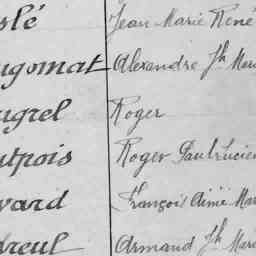 slé Jean Marie René
ugomat Alexandre Jh Mari
ugrel Roger
utpois Roger Paul Lucien
vard François Aimé Mar
dreul Armand Jh Mari